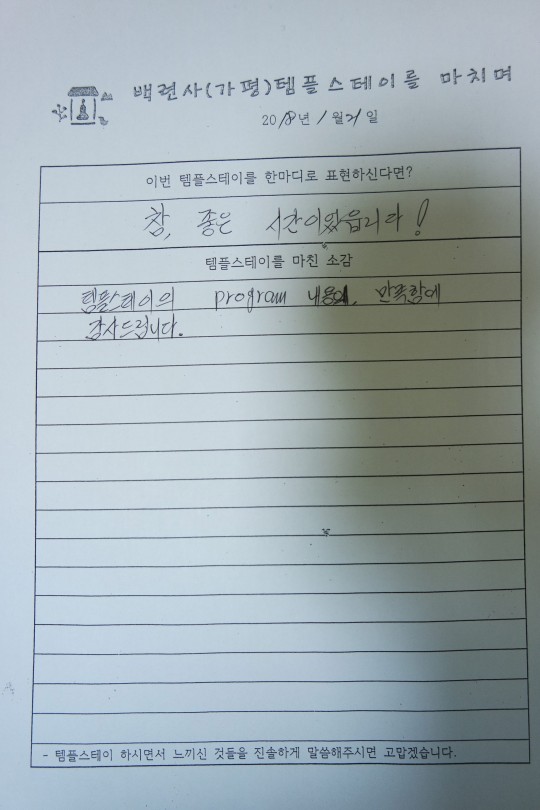 백련사(가평)템플스테이를 마치며
2018년 1월 21일
이번 템플스테이를 한마디로 표현하신다면?
참, 좋은 시간이였읍니다!
템플스테이를 마친 소감
템플스테이의 program 내용에, 만족함에
감사드립니다.
- 템플스테이 하시면서 느끼신 것들을 진솔하게 말씀해주시면 고맙겠습니다.